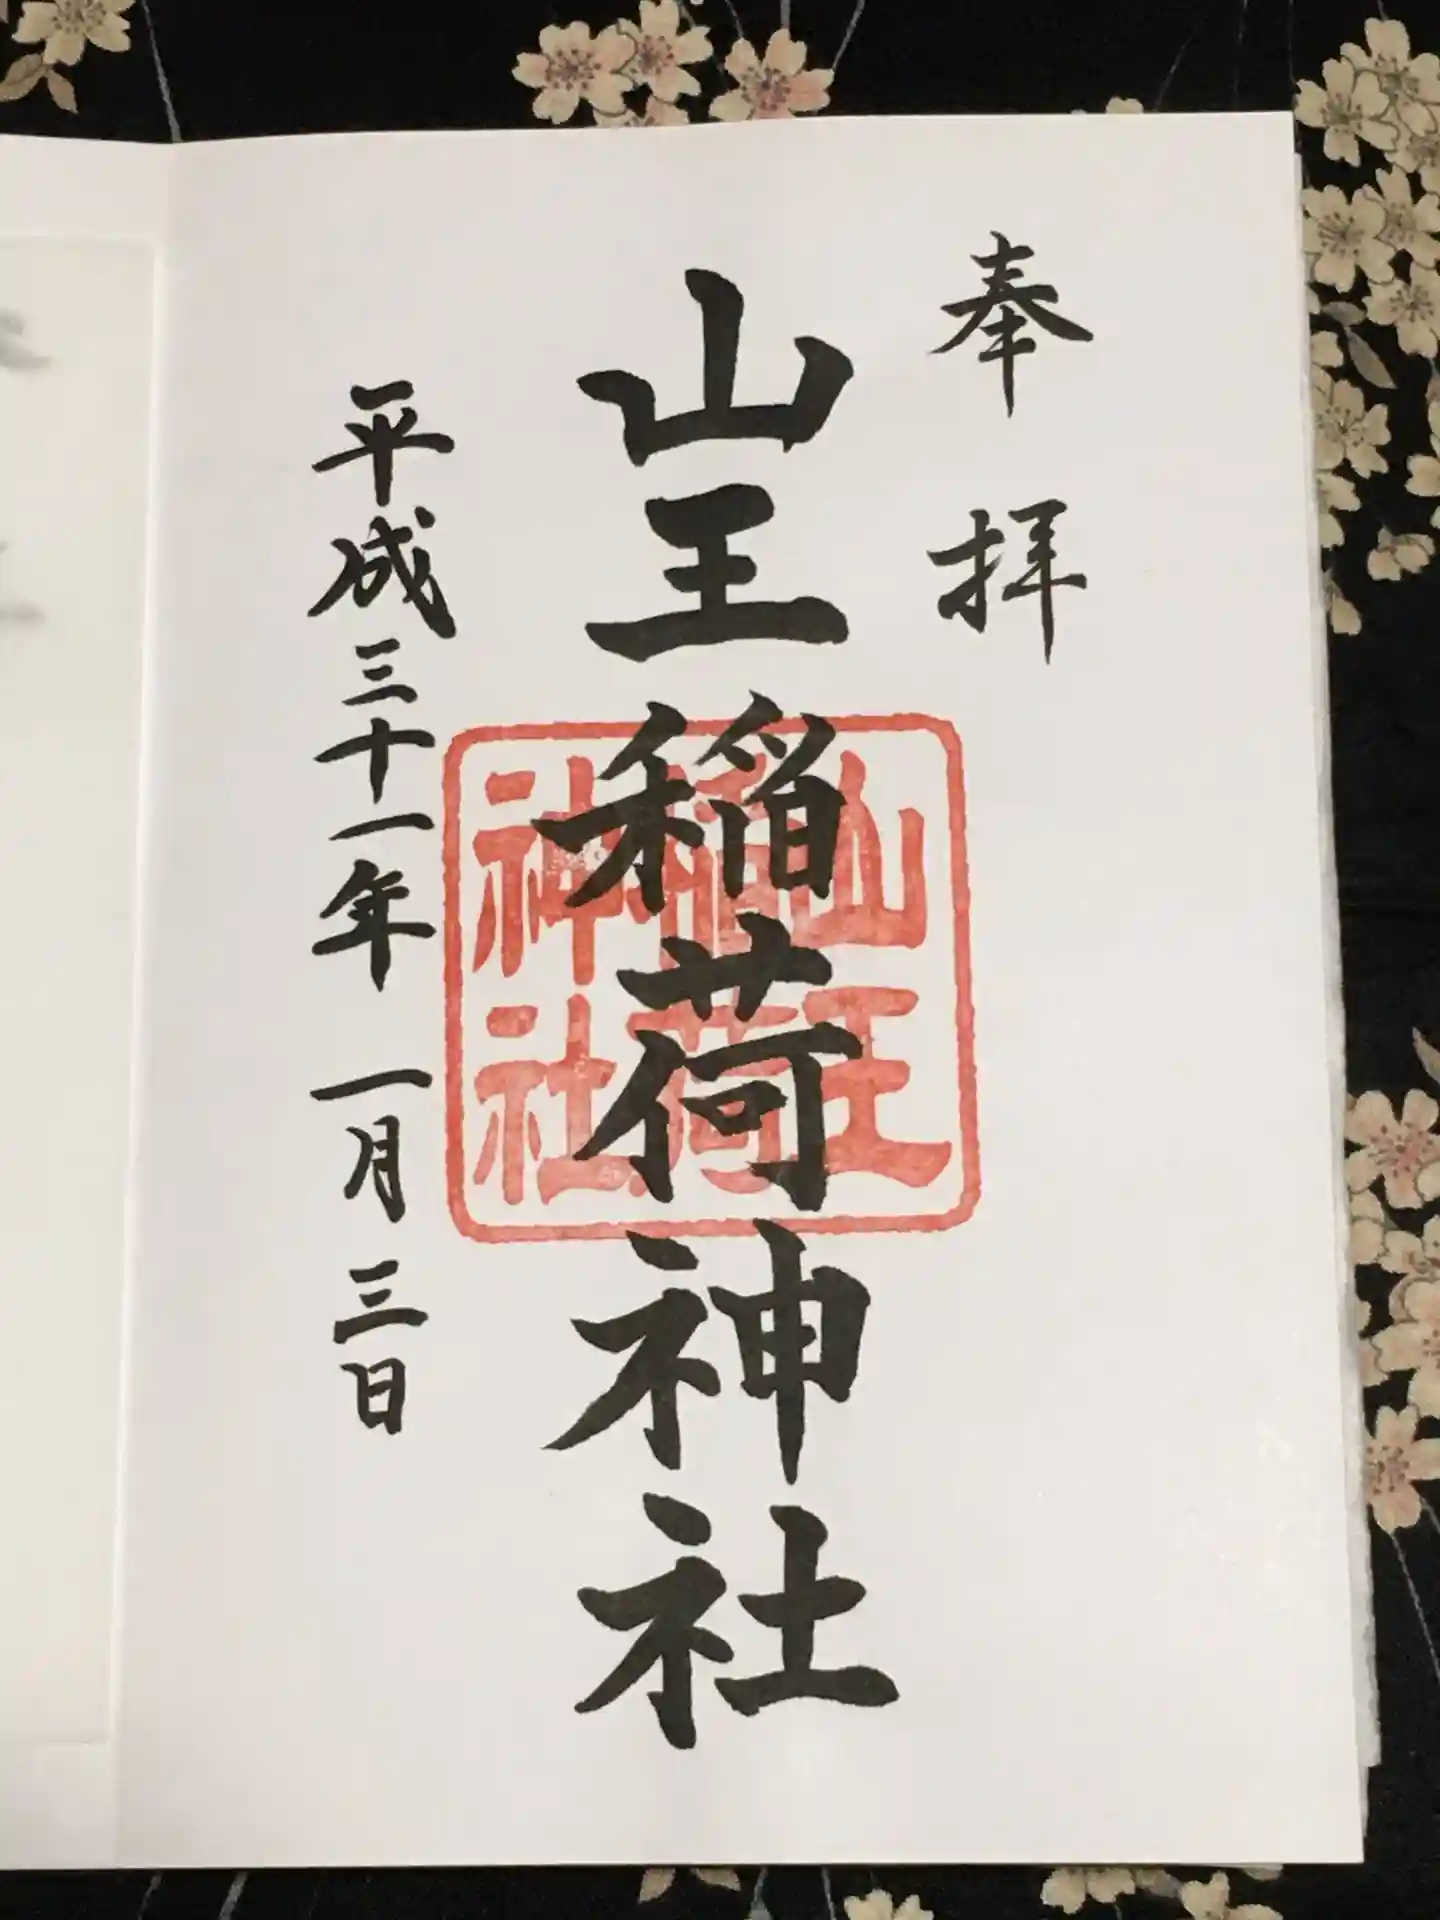 奉拝
山王稲荷神社
山王
稲荷
神社
平成三十一年 一月三日